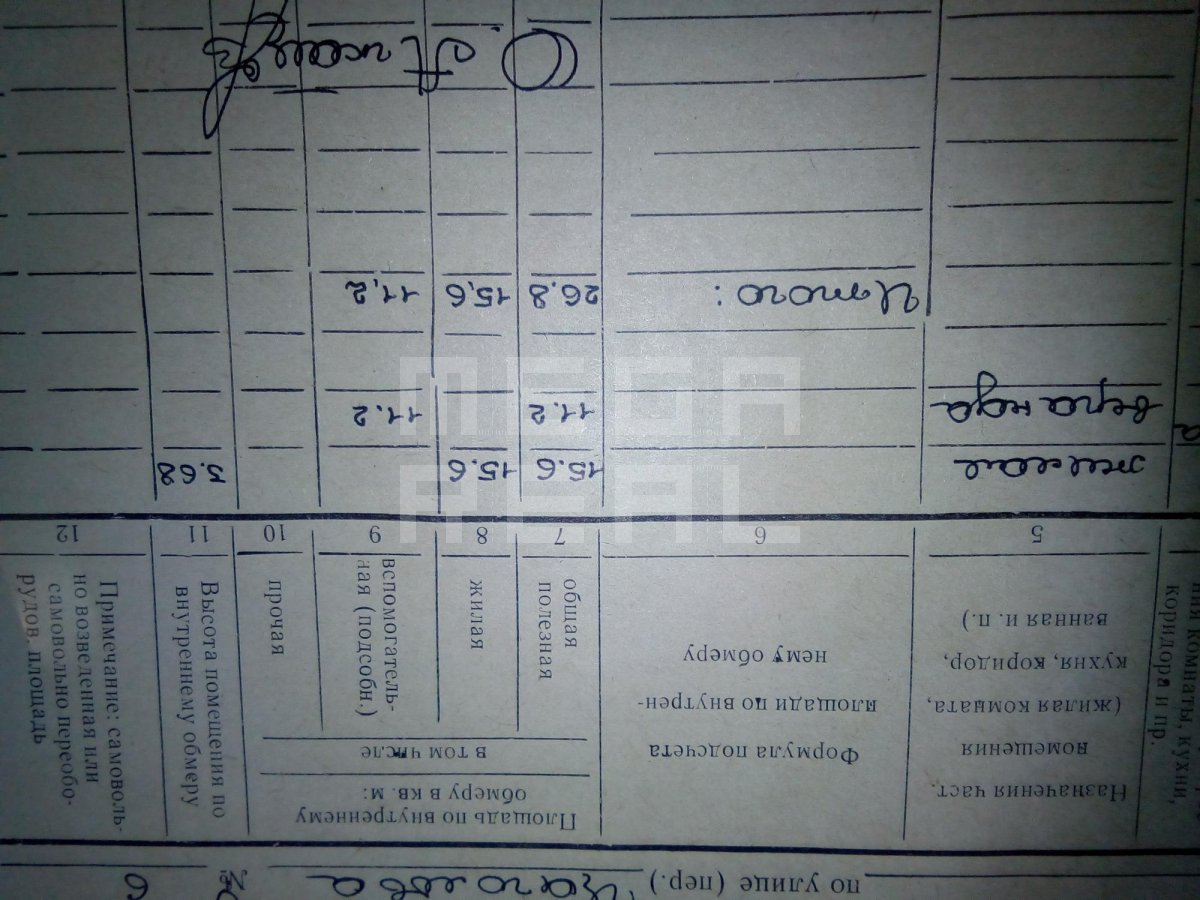 по улице (пер.) Цаголова № 6
Площадь по внутреннему
обмеру в кв. м:
в том числе
ния комнаты, кухни,
коридора и пр.
Назначения част.
помещения
(жилая комната,
кухня, коридор,
ванная и. п.)
Формула подсчета
площади по внутрен-
нему обмеру
общая
полезная
жилая
вспомогатель-
ная (подсобн.)
прочая
Высота помещения по
внутреннему обмеру
Примечание: самоволь-
но возведенная или
самовольно переобо-
рудов. площадь
5 6 7 8 9 10 11 12
жилая 15.6 15.6 3.68
2 веранда 11.2 11.2
Итого: 26.8 15,6 11,2
MEGA
REAL